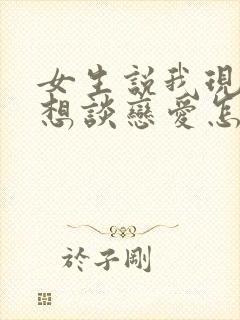 女生說我現
想談戀愛怎
於子剛